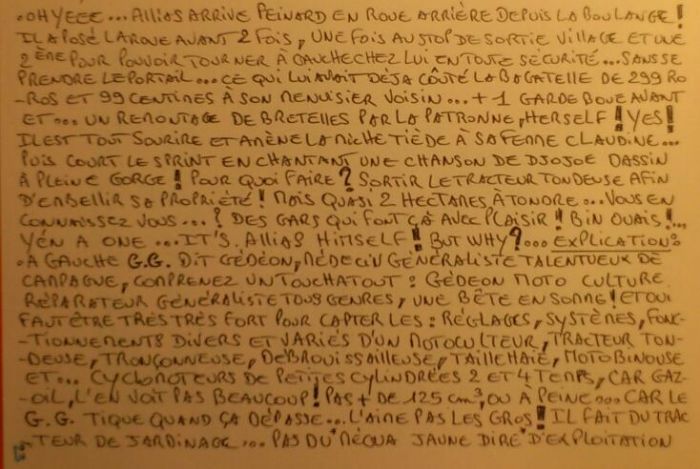 .OH YEEE...ALLIAS ARRIVE PEINARD EN ROUE ARRIÈRE DEPUIS LA BOULANGE!
IL A POSÉ LA ROUE AVANT 2 FOIS, UNE FOIS AU STOP DE SORTIE VILLAGE ET UNE
2ÈME POUR POUVOIR TOURNER À GAUCHE CHEZ LUI EN TOUTE SÉCURITÉ...SANS SE
PRENDRE LE PORTAIL...CE QUI LUI AVOIT DÉJA COÛTÉ LA BAGATELLE DE 299 RO
-ROS ET 99 CENTINES À SON MENUISIER VOISIN...+1 GARDE BOUE AVANT
ET...UN REMONTAGE DE BRETELLES PAR LA PATRONNE, HERSELF! YES!
IL EST TOUT SOURIRE ET AMÈNE LA MICHE TIÈDE À SA FEMME CLAUDINE...
PUIS COURT LE SPRINT EN CHANTANT UNE CHANSON DE DJOJOE DASSIN
À PLEINE GORGE! POUR QUOI FAIRE? SORTIR LE TRACTEUR TONDEUSE AFIN
D'EMBELLIR SA PROPRIÉTÉ! MAIS QUASI 2 HECTARES À TONDRE...VOUS EN
CONNAISSEZ VOUS...? DES GARS QUI FONT ÇÀ AVEC PLAISIR! BIN OUAIS!...
Y EN A ONE...IT'S. ALLIAS HIMSELF! BUT WHY?...EXPLICATION:
.À GAUCHE G.G. DIT GÉDÉON, MÉDECIN GÉNÉRALISTE TALENTUEUX DE
CAMPAGNE, COMPRENEZ UN TOUCHATOUT: GÉDEON MOTO CULTURE
RÉPARATEUR GÉNÉRALISTE TOUS GENRES, UNE BÊTE EN SOMME! ET OUI
FAUT ÊTRE TRÈS TRÈS FORT POUR CAPTER LES: RÉGLAGES, SYSTÈMES, FONC-
-TIONNEMENTS DIVERS ET VARIÉS D'UN MOTOCULTEUR, TRACTEUR TON-
-DEUSE, TRONÇONNEUSE, DÉBROUISSAILLEUSE, TAILLE HAIE, MOTOBINOUSE
ET... CYCLOMOTEURS DE PETITES CYLINDRÉES 2 ET 4 TEMPS, CAR GAZ-
-OIL, L'EN VOIT PAS BEAUCOUP! PAS + DE 125 cm³, OU À PEINE...CAR LE
G.G. TIQUE QUAND ÇA DÉPASSE...L'AIME PAS LES GROS! IL FAIT DU TRAC
-TEUR DE JARDINAGE... PAS DU "MÉQUA JAUNE DIRE" D'EXPLOITATION